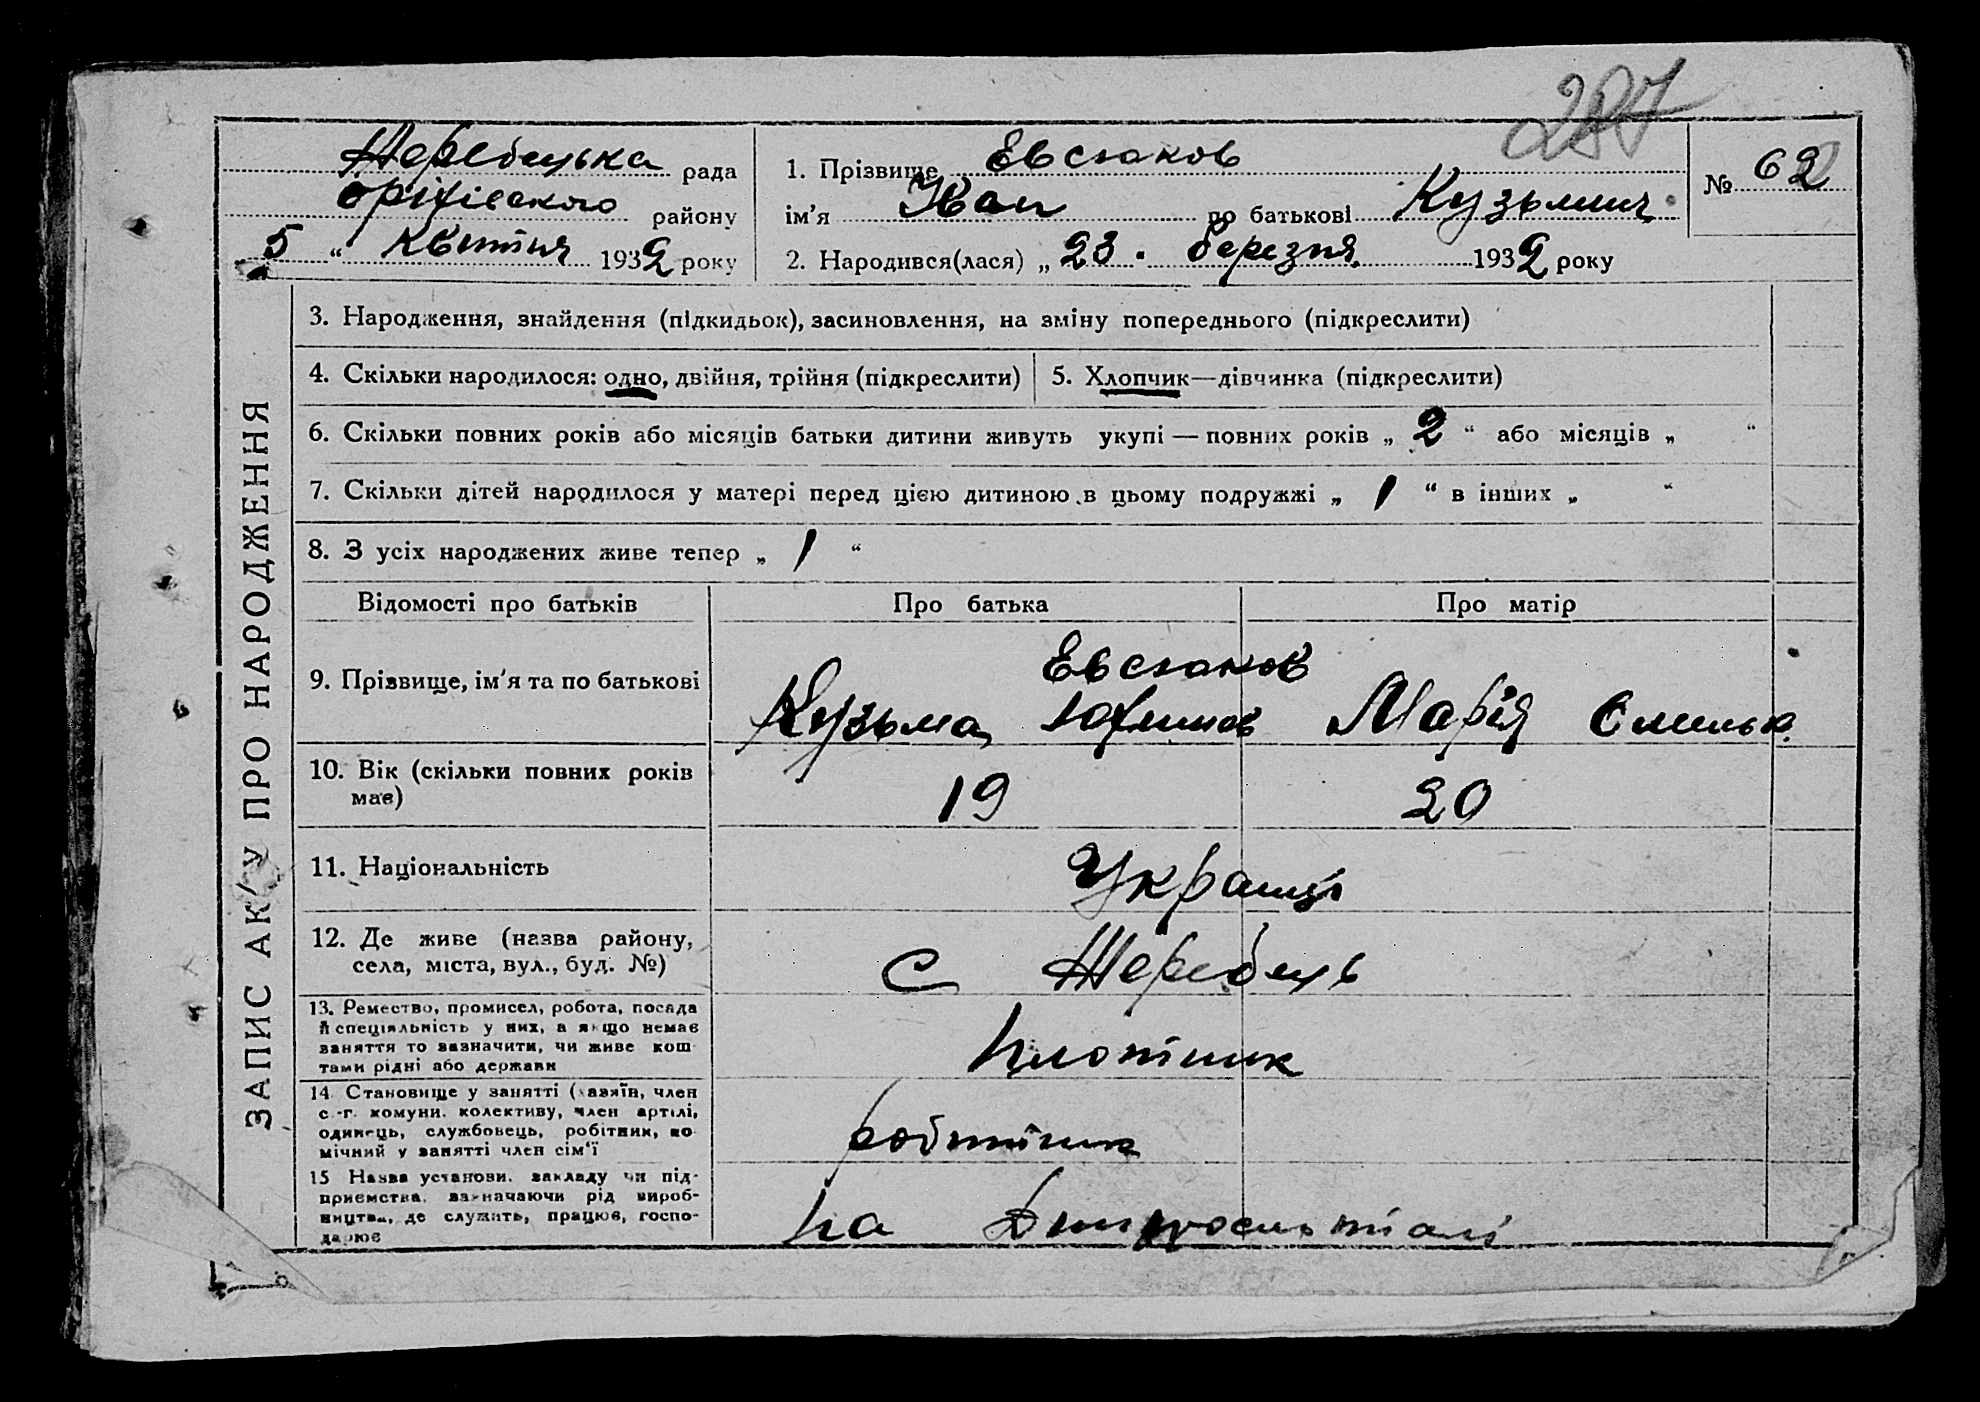 287
Жеребецька рада
Оріхівского району
5 “ квітня 1932 року
1. Прізвище Евсюков
ім’я Иван по батькові Кузьмич
2. Народився(лася) „ 23 . березня 1932 року
№ 62
ЗАПИС АКТУ ПРО НАРОДЖЕННЯ
3. Народження, знайдення (підкидьок), засиновлення, на зміну попереднього (підкреслити)
4. Скільки народилося: одно, двійня, трійня (підкреслити)
5. Хлопчик—дівчинка (підкреслити)
6. Скільки повних років або місяців батьки дитини живуть укупі — повних років „ 2 “ або місяців „ “
7. Скільки дітей народилося у матері перед цією дитиною в цьому подружжі „ 1 “ в інших „ “
8. З усіх народжених живе тепер „ 1 “
Відомості про батьків Про батька Про матір
9. Прізвище, ім’я та по батькові
Евсюков
Кузьма Юхимов Марія Омельк.
10. Вік (скільки повних років
має)
19 20
11. Національність
Українці
12. Де живе (назва району,
села, міста, вул., буд. №)
с Жеребець
13. Ремество, промисел, робота, посада
й спеціяльність у них, а якщо немає
заняття то зазначити, чи живе кош
тами рідні або держави
плотник
14. Становище у занятті (хазяїн, член
с.-г. комуни. колективу, член артілі,
одинець, службовець, робітник, по
мічний у занятті член сім’ї
робітник
15 Назва установи. закладу чи під-
приємства. зазначаючи рід вироб-
ництва, де служить, працює, госпо-
дарює
на Дніпросталі